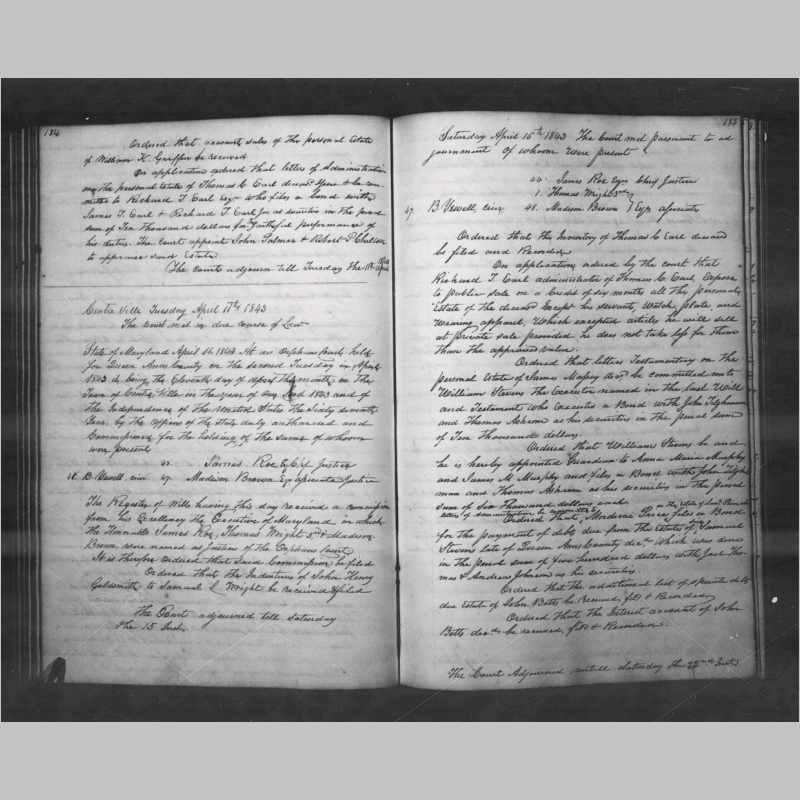 184
Ordered that account sales of the personal Estate
of William H. Griffin be received
On application ordered that letters of Administration
on the personal Estate of Thomas C Earl decd be com
mitted to Richard T Earl who files a bond with
James T. Earl & Richard T Earl Jr as securities in the penal
sum of Ten thousand dollars for faithful performance of
his duties. The court appoint John Palmer & Robert P.
to appraise said Estate
The court adjourn till Tuesday the 11th April
Centre Ville Tuesday April 11th 1843
The Court met in due course of Law
State of Maryland April 1843 At an Orphans Court held
for Queen Anns County on the second Tuesday in April
1843 it being the Eleventh day of the month in the
Town of Centre Ville in the year of our Lord 1843 and of
the Independence of the United States the Sixty seventh
Year, by the of the State duly authorized and
Commissioned for the holding of the same of whom
were present
James Roe Esqr Chf Justice
B. Vewell, crier 47 Madison Brown Esqr associate Justice
The Register of Wills having this day received a commission
from his Excellency the Executive of Maryland in which
the Honorable James Roe, Thomas Wright 3rd & Madison
Brown were named as Justices of the Orphans Court
It is therefore ordered that said Commission be filed
Ordered that the Indentures of John Henry
Goldsmith to Samuel Wright be received & filed
The Court adjourned till Saturday
the 15 Inst.
185
Saturday April 15th 1843 The Court met pursuant to ad
journment of whom were present
44. James Roe Esqr Chief Justice
1. Thomas Wright 3rd
47 B Vewell, crier 48. Madison Brown } Esqr associates
Ordered that the Inventory of Thomas C Earl deceased
be filed and Recorded
On application ordered by the court that
Richard T. Earl administrator of Thomas C Earl, expose
to public sale on a credit of six months all the personal
Estate of the deceased Except his servants, Watch, plate and
wearing apparel, Which excepted articles he will sell
at private sale provided he does not take less for them
than the appraised value.
Ordered that letters Testamentary on the
personal Estate of James decd be committed unto
William Stevens the Executor named in the last Will
and Testament who Executes a Bond with John Tighman
and Thomas Ashcom as securities in the penal sum
of Ten Thousand dollars.
Ordered that William Stevens be and
he is hereby appointed Guardian to Anna Maria Murphy
and James M Murphy and files a Bond with John Tigh
man and Thomas Ashcom as his securities in the penal
sum of Six Thousand dollars each
Ordered that Mordecai Price files a Bond
for the payment of debts due from the Estate of Samuel
Stevens late of Queen Anns County decd Which was done
in the penal sum of five hundred dollars with
& Andrew Johnson as his securities.
Ordered that the additional list of sperate debts
due Estate of John Betts be received, filed & Recorded
Ordered that the Interest account of John
Betts decd be received, filed & Recorded.
The Court Adjourned until Saturday the 22nd Inst